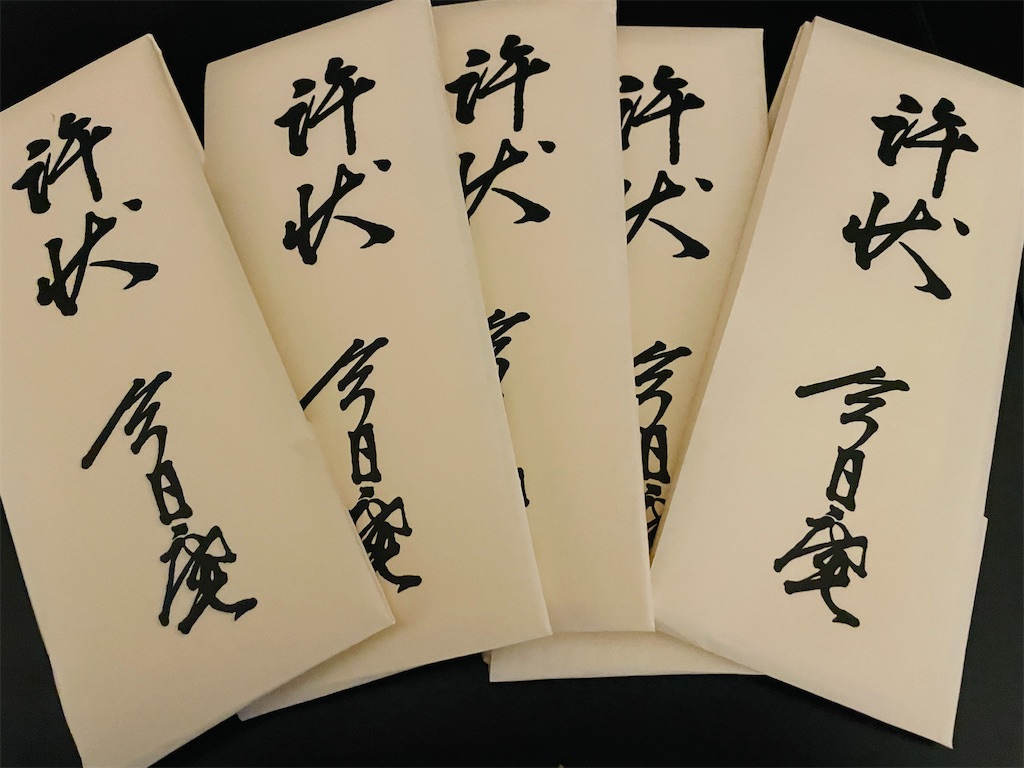 許状
今日庵
許状
今日庵
許状
今
許状
今日庵
許状
今日庵